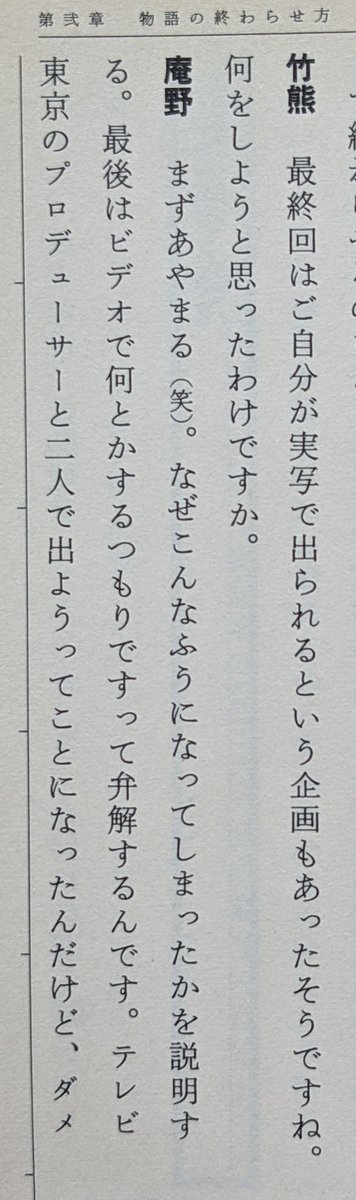 第弐章　物語の終わらせ方
竹熊　最終回はご自分が実写で出られるという企画もあったそうですね。
何をしようと思ったわけですか。
庵野　まずあやまる（笑）。なぜこんなふうになってしまったかを説明す
る。最後はビデオで何とかするつもりですって弁解するんです。テレビ
東京のプロデューサーと二人で出ようってことになったんだけど、ダメ